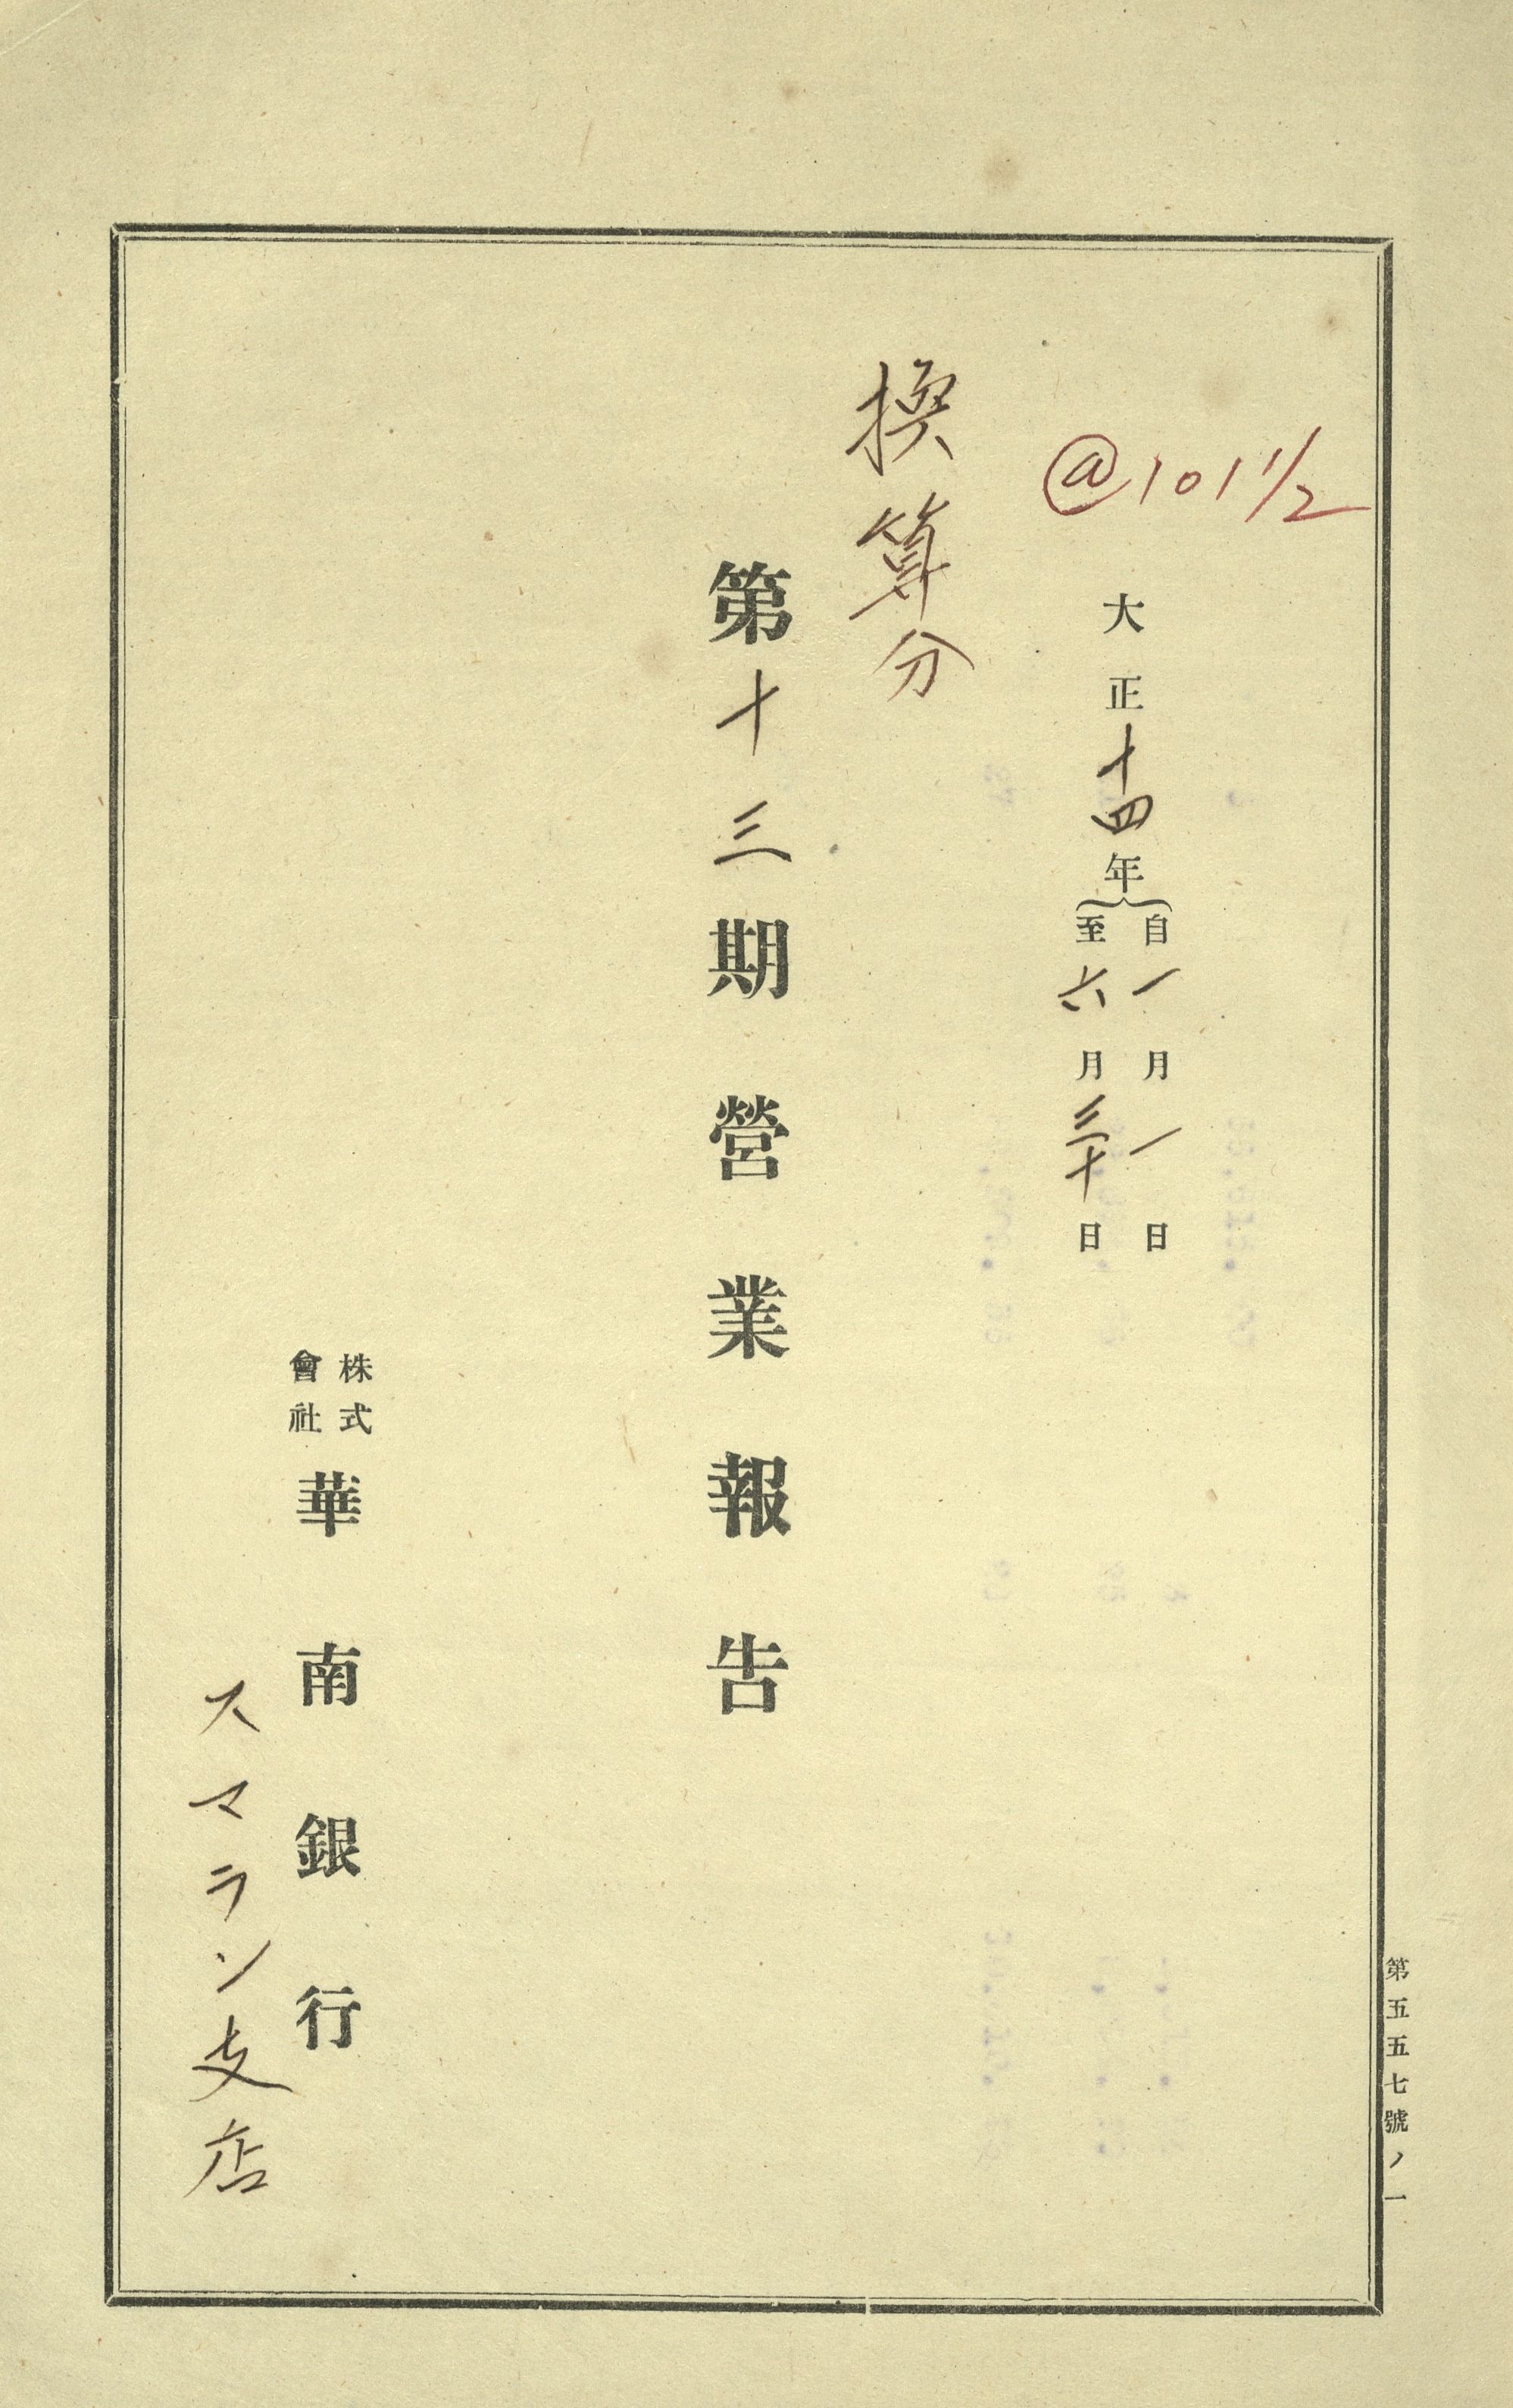 @101 1/2
大正十四年
自一月一日
至六月三十日
換算分
第十三期營業報告
株式會社華南銀行
スマラン支店
第五五七號ノ一